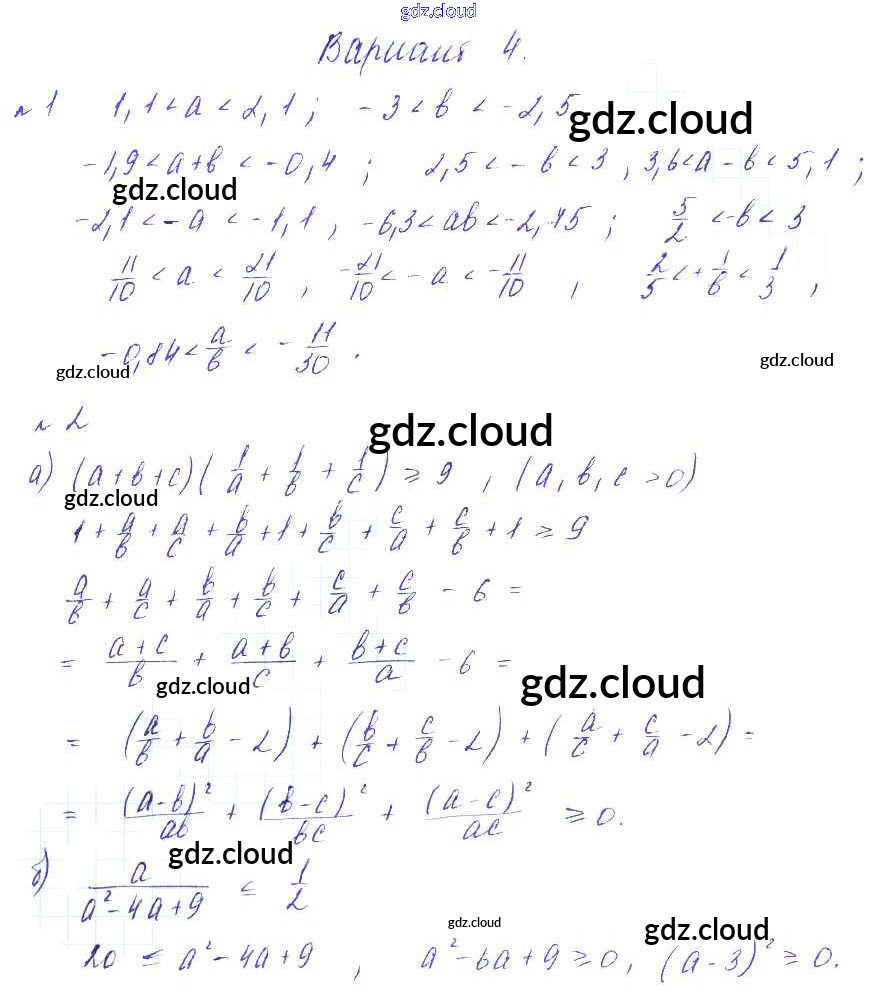 gdz.cloud
Вариант 4.
№ 1 1,1 < a < 2,1 ; -3 < b < -2,5
gdz.cloud
-1,9 < a+b < -0,4 ; 2,5 < -b < 3 , 3,6 < a-b < 5,1 ;
gdz.cloud
-2,1 < -a < -1,1 , -6,3 < ab < -2,75 ; 5/2 < -b < 3
11/10 < a < 21/10 , -21/10 < -a < -11/10 , 2/5 < -1/b < 1/3 ,
-0,84 < a/b < -11/30 .
gdz.cloud gdz.cloud
№ 2
gdz.cloud
а) (a+b+c)(1/a + 1/b + 1/c) ≥ 9 , (a, b, c > 0)
gdz.cloud
1 + a/b + a/c + b/a + 1 + b/c + c/a + c/b + 1 ≥ 9
a/b + a/c + b/a + b/c + c/a + c/b - 6 =
= (a+c)/b + (a+b)/c + (b+c)/a - 6 =
gdz.cloud gdz.cloud
= (a/b + b/a - 2) + (b/c + c/b - 2) + (a/c + c/a - 2) =
= (a-b)²/ab + (b-c)²/bc + (a-c)²/ac ≥ 0.
gdz.cloud
б) a/(a²-4a+9) ≤ 1/2
gdz.cloud gdz.cloud
2a ≤ a²-4a+9 , a²-6a+9 ≥ 0, (a-3)² ≥ 0.